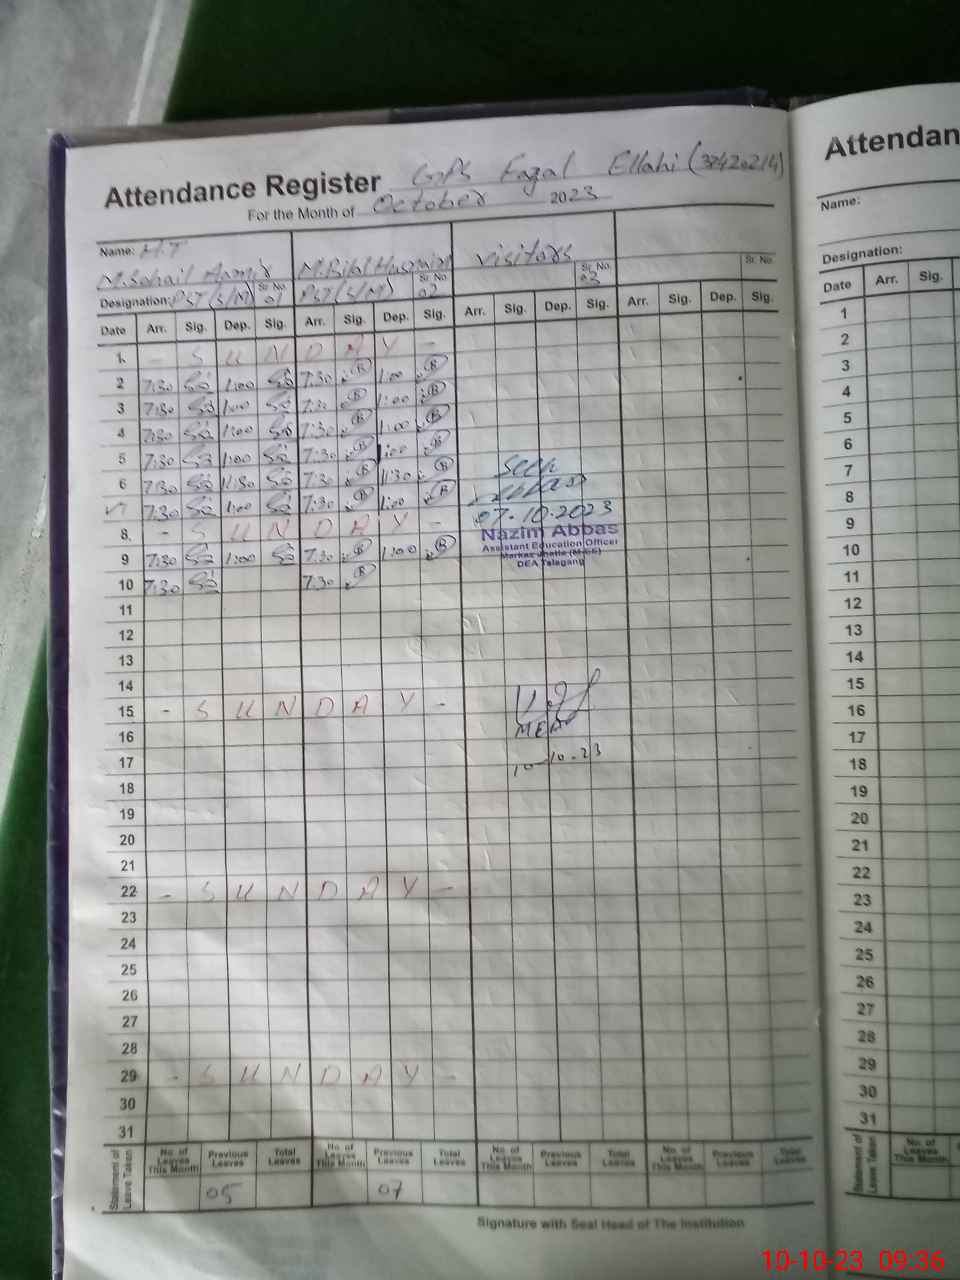 Attendance Register GPS Fazal Ellahi (37420214)
For the Month of October 2023
Name: H.T
M.Sohail Aamir Sr. No. 01
Designation: PST (S/M)
M.Bilal Husnain Sr. No. 02
PST (S/M)
Visitors Sr. No. 03
Sr. No.
Date Arr. Sig. Dep. Sig. Arr. Sig. Dep. Sig. Arr. Sig. Dep. Sig. Arr. Sig. Dep. Sig.
1. - S U N D A Y -
2 7:30 1:00 7:30 1:00
3 7:30 1:00 7:30 1:00
4 7:30 1:00 7:30 1:00
5 7:30 1:00 7:30 1:00
6 7:30 11:30 7:30 11:30
7 7:30 1:00 7:30 1:00
8. - S U N D A Y -
9 7:30 1:00 7:30 1:00
10 7:30 7:30
11
12
13
14
15 - S U N D A Y -
16
17
18
19
20
21
22 - S U N D A Y -
23
24
25
26
27
28
29 - S U N D A Y -
30
31
Seen
Abbas
07-10-2023
Nazim Abbas
Assistant Education Officer
DEA Talagang
MEA
10-10-23
Statement of Leave Taken
No. of Leaves This Month Previous Leaves Total Leaves No. of Leaves This Month Previous Leaves Total Leaves No. of Leaves This Month Previous Leaves Total Leaves No. of Leaves This Month Previous Leaves Total Leaves
05 07
Signature with Seal Head of The Institution
Attendan
Name:
Designation:
Date Arr. Sig.
1
2
3
4
5
6
7
8
9
10
11
12
13
14
15
16
17
18
19
20
21
22
23
24
25
26
27
28
29
30
31
Statement of Leave Taken
No. of Leaves This Month
10-10-23 09:36